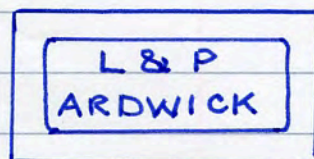 L & P
ARDWICK